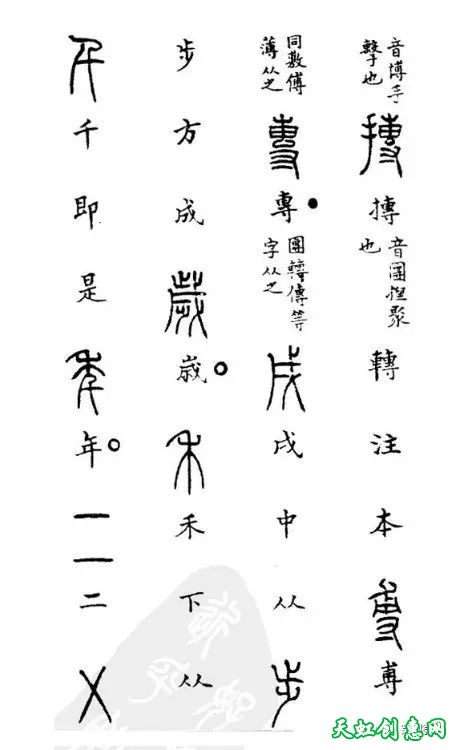 音博手擊也摶摶音團捏聚也轉注本尃尃
同敷傅薄从之專專●團轉傳等字从之戌戌中从步
步方成歲歲○禾禾下从
千千即是秊年○二二
天虹创意网